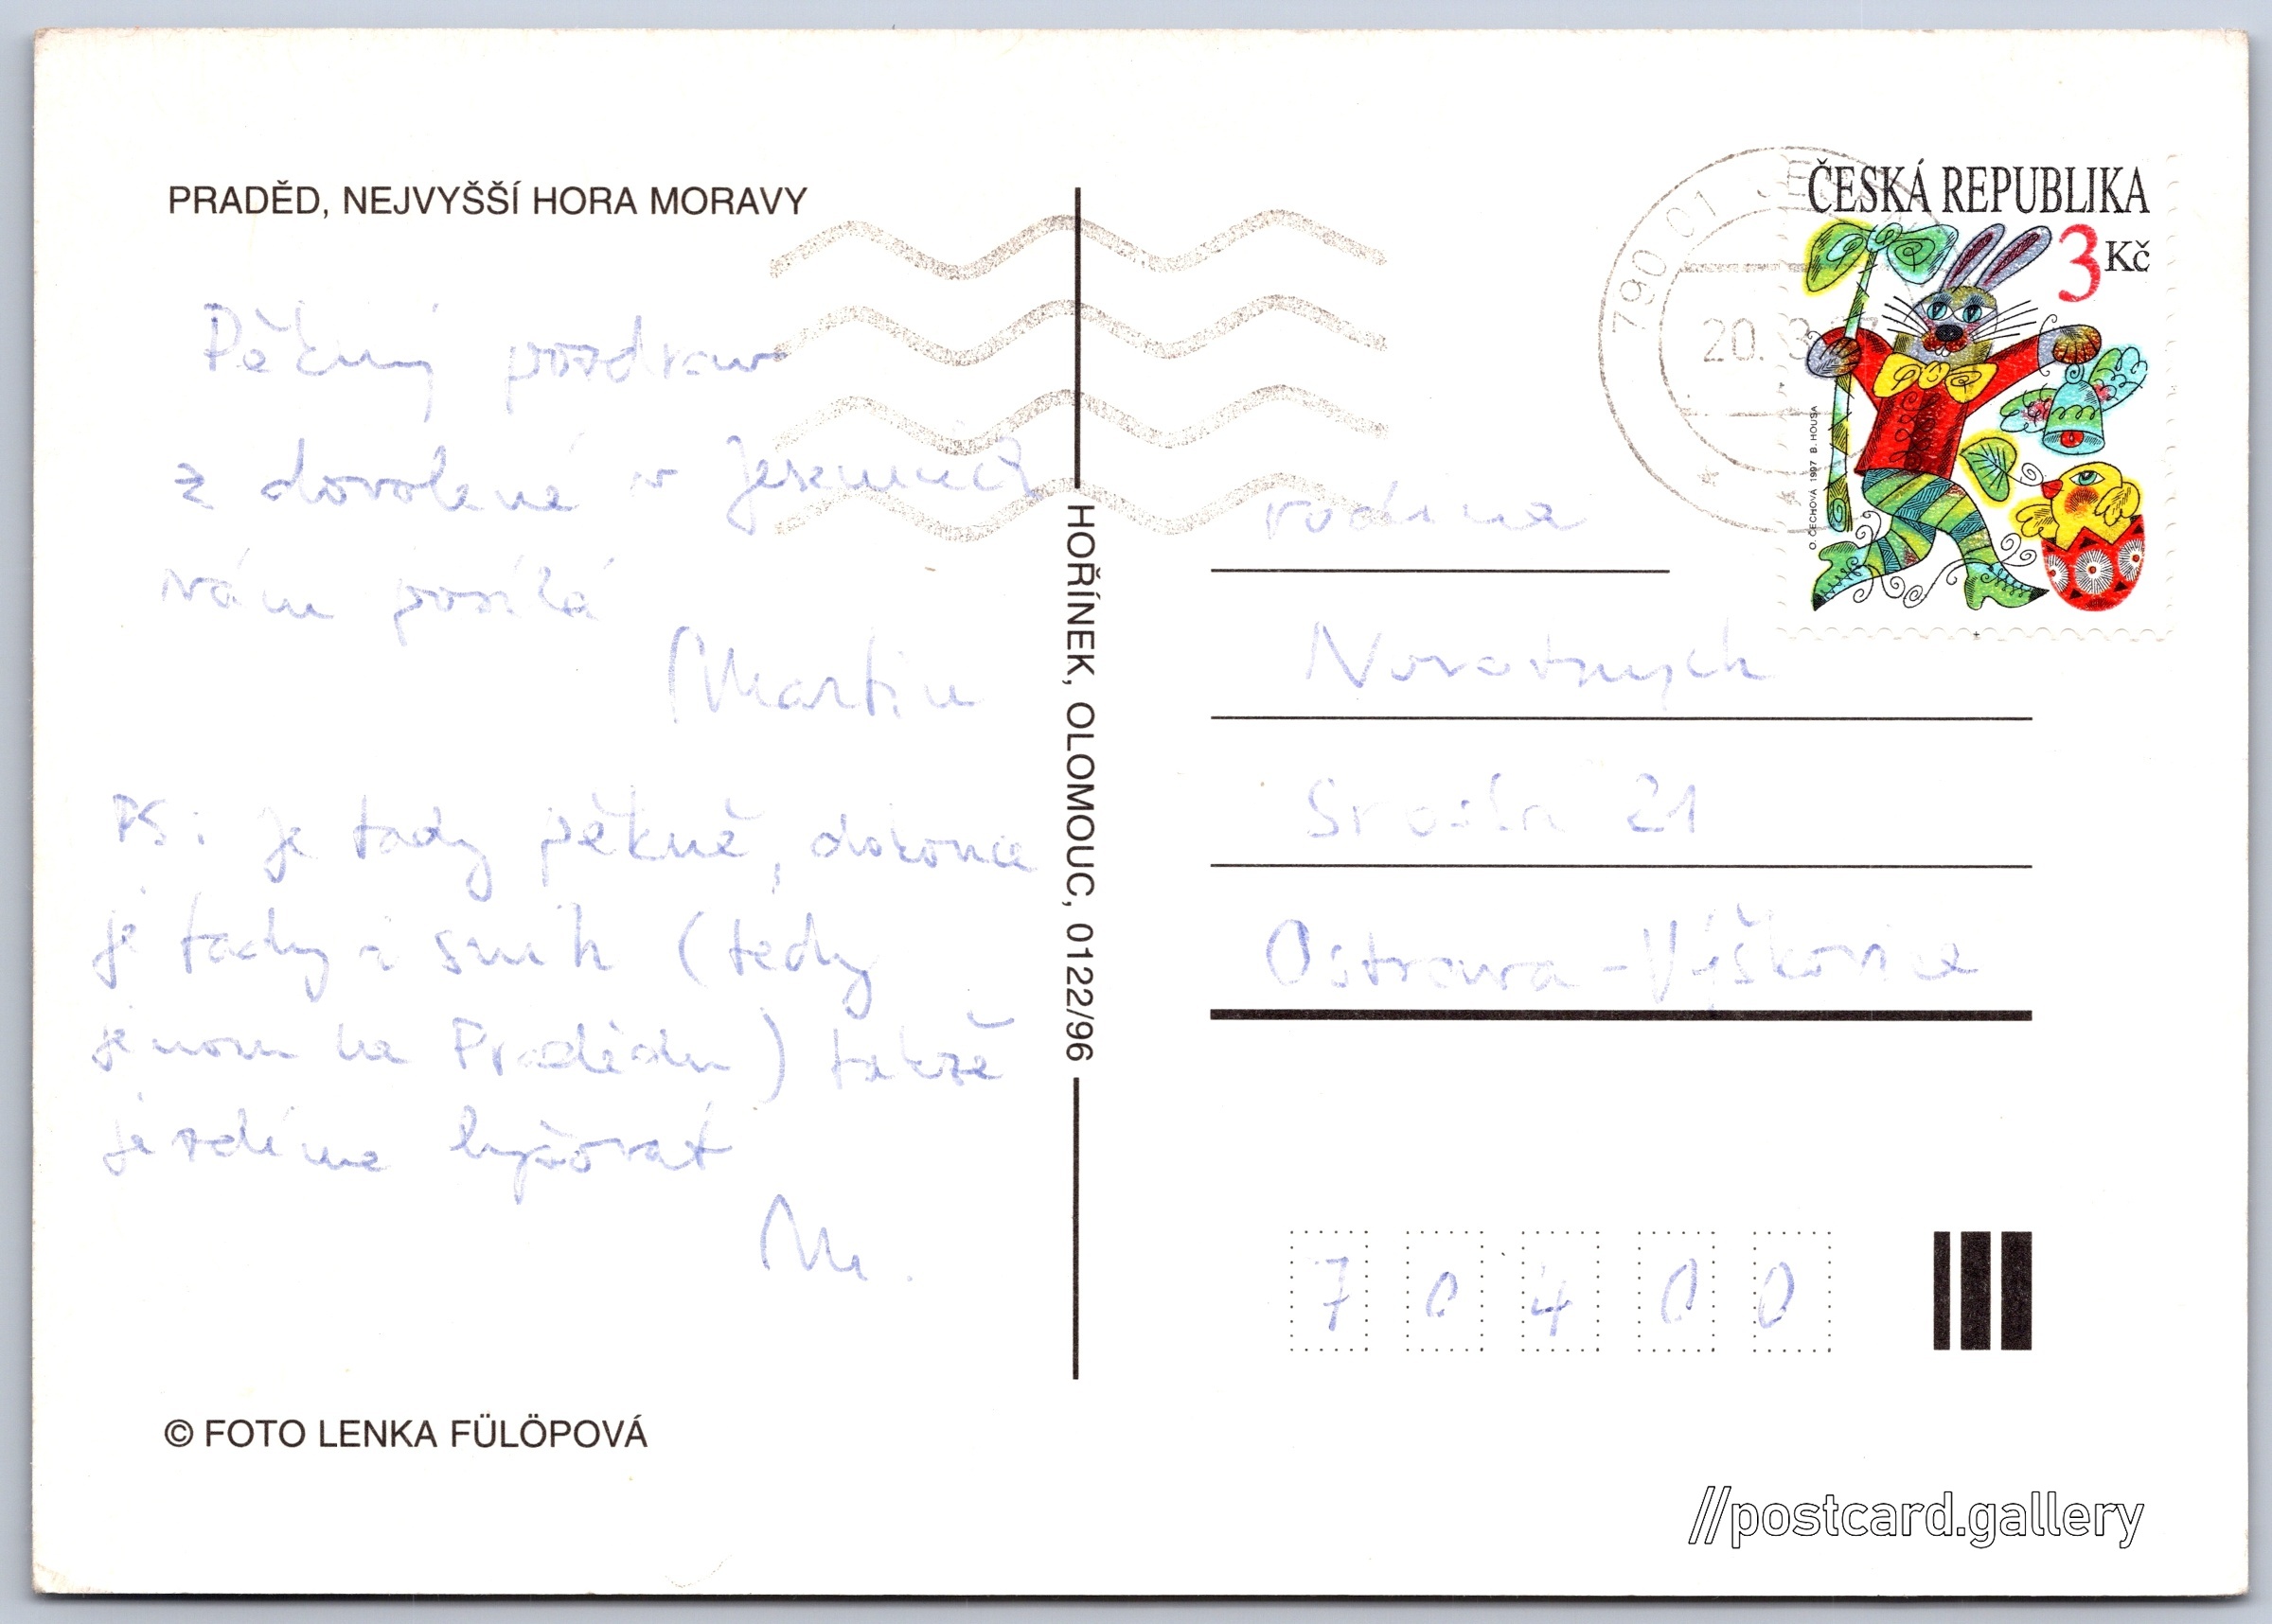 PRADĚD, NEJVYŠŠÍ HORA MORAVY
Pěkný pozdrav
z dovolené v Jeseníkách
Vám posílá
Martin
PS: Je tady pěkně, dokonce
je tady i sníh (tedy
jenom na Pradědu) takže
jezdíme lyžovat
M.
© FOTO LENKA FÜLÖPOVÁ
HOŘÍNEK, OLOMOUC, 0122/96
790 01
20. 3
ČESKÁ REPUBLIKA
3 Kč
O. ČECHOVÁ 1997 B. HOUSA
rodina
Novotných
Srbská 21
Ostrava - Výškovice
7 0 4 0 0
//postcard.gallery